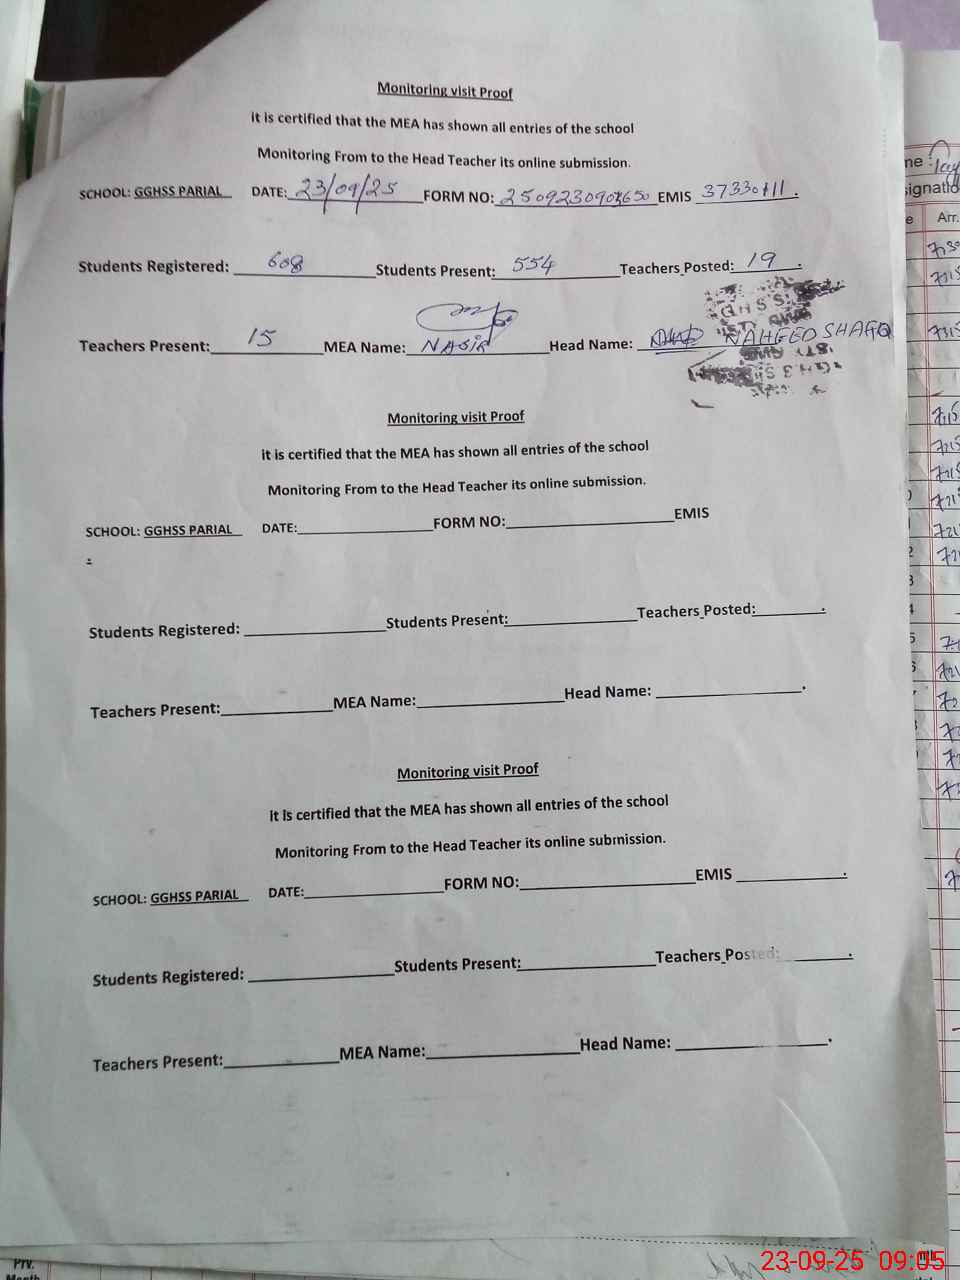 Monitoring visit Proof
it is certified that the MEA has shown all entries of the school
Monitoring From to the Head Teacher its online submission.
SCHOOL: GGHSS PARIAL DATE: 23/09/25 FORM NO: EMIS
Students Registered: 608 Students Present: 554 Teachers Posted: 19.
Teachers Present: 15 MEA Name: NASIR Head Name: NAHEED SHAFQ
Monitoring visit Proof
it is certified that the MEA has shown all entries of the school
Monitoring From to the Head Teacher its online submission.
SCHOOL: GGHSS PARIAL DATE: FORM NO: EMIS
.
Students Registered: Students Present: Teachers Posted: .
Teachers Present: MEA Name: Head Name: .
Monitoring visit Proof
it is certified that the MEA has shown all entries of the school
Monitoring From to the Head Teacher its online submission.
SCHOOL: GGHSS PARIAL DATE: FORM NO: EMIS .
Students Registered: Students Present: Teachers Posted: .
Teachers Present: MEA Name: Head Name: .
Arr.
Prv.
Month
23-09-25 09:05